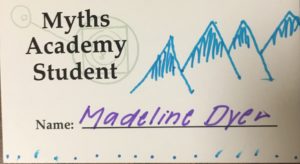 Myths
Academy
Student
Name: Madeline Dyer